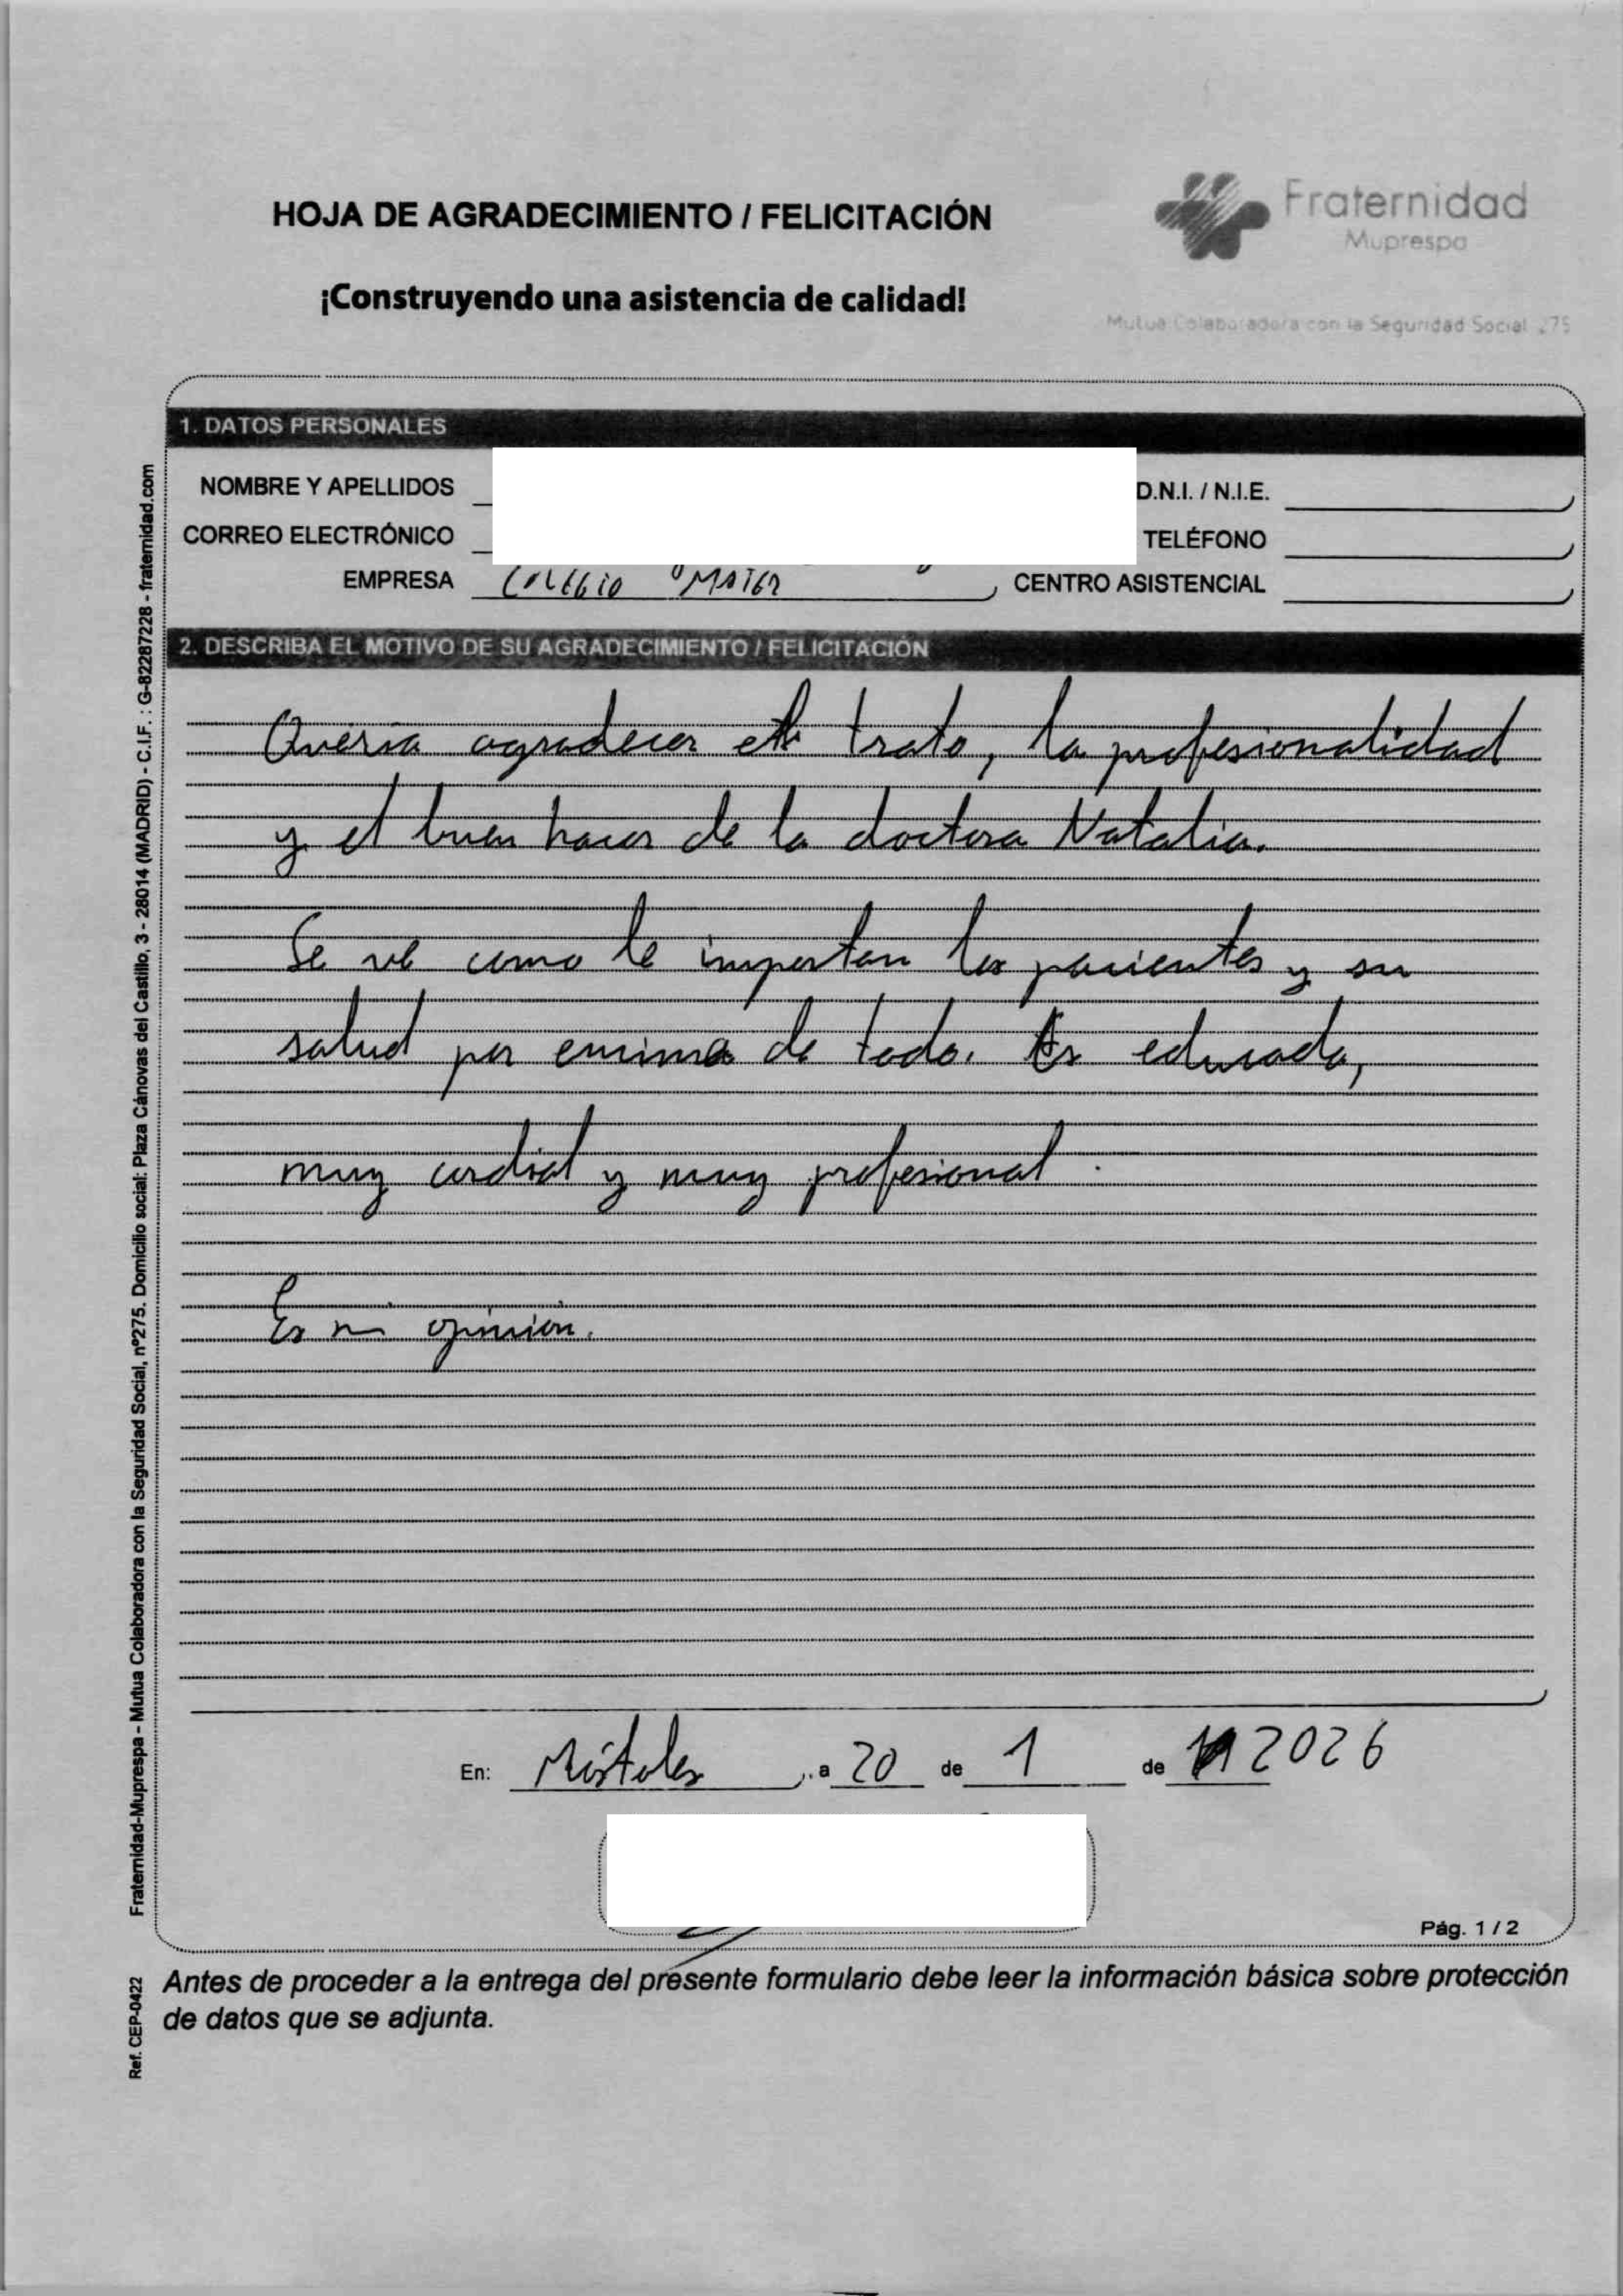 HOJA DE AGRADECIMIENTO / FELICITACIÓN
¡Construyendo una asistencia de calidad!
Fraternidad
Muprespa
Mutua Colaboradora con la Seguridad Social 275
1. DATOS PERSONALES
NOMBRE Y APELLIDOS D.N.I. / N.I.E.
CORREO ELECTRÓNICO TELÉFONO
EMPRESA COLEGIO MATER CENTRO ASISTENCIAL
2. DESCRIBA EL MOTIVO DE SU AGRADECIMIENTO / FELICITACIÓN
Quería agradecer el trato, la profesionalidad
y el buen hacer de la doctora Natalia.
Se ve como le importan los pacientes y su
salud por encima de todo. Es educada,
muy cordial y muy profesional.
Es mi opinión.
En: Móstoles, a 20 de 1 de 2026
Pág. 1 / 2
Antes de proceder a la entrega del presente formulario debe leer la información básica sobre protección
de datos que se adjunta.
Fraternidad-Muprespa - Mutua Colaboradora con la Seguridad Social, nº275. Domicilio social: Plaza Cánovas del Castillo, 3 - 28014 (MADRID) - C.I.F. : G-82287228 - fraternidad.com
Ref. CEP-0422